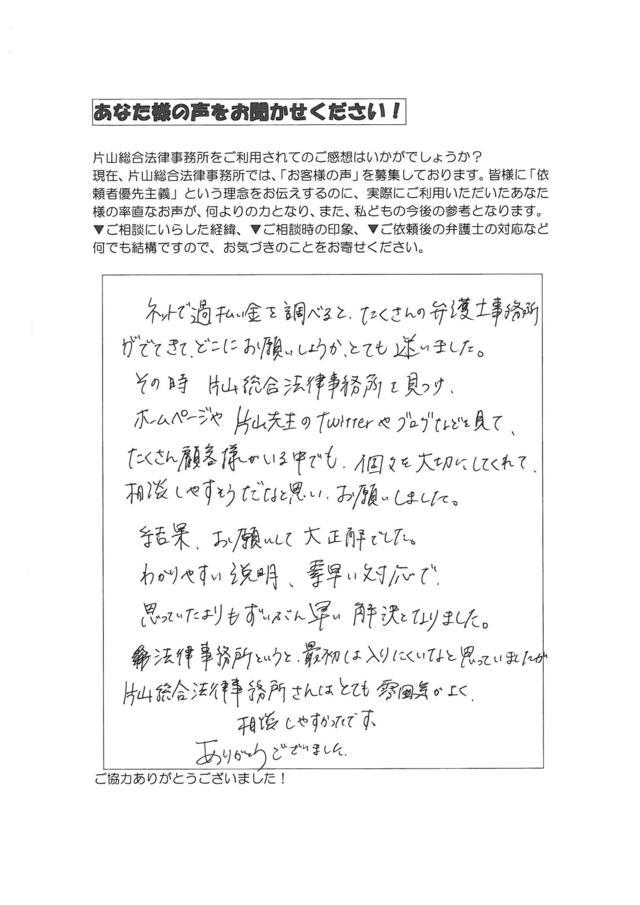 あなた様の声をお聞かせください！
片山総合法律事務所をご利用されてのご感想はいかがでしょうか？
現在、片山総合法律事務所では、「お客様の声」を募集しております。皆様に「依
頼者優先主義」という理念をお伝えするのに、実際にご利用いただいたあなた
様の率直なお声が、何よりの力となり、また、私どもの今後の参考となります。
▼ご相談にいらした経緯、▼ご相談時の印象、▼ご依頼後の弁護士の対応など
何でも結構ですので、お気づきのことをお寄せください。
ネットで過払い金を調べると、たくさんの弁護士事務所
がでてきて、どこにお願いしようか、とても迷いました。
その時 片山総合法律事務所を見つけ、
ホームページや 片山先生のTwitterやブログなどを見て、
たくさん顧客様がいる中でも、個々を大切にしてくれて、
相談しやすそうだなと思い、お願いしました。
結果、お願いして 大正解でした。
わかりやすい説明、素早い対応で、
思っていたよりもずいぶん早い 解決となりました。
法律事務所というと、最初は入りにくいなと思っていましたが
片山総合法律事務所さんはとても 雰囲気がよく、
相談しやすかったです。
ありがとうございました。
ご協力ありがとうございました！